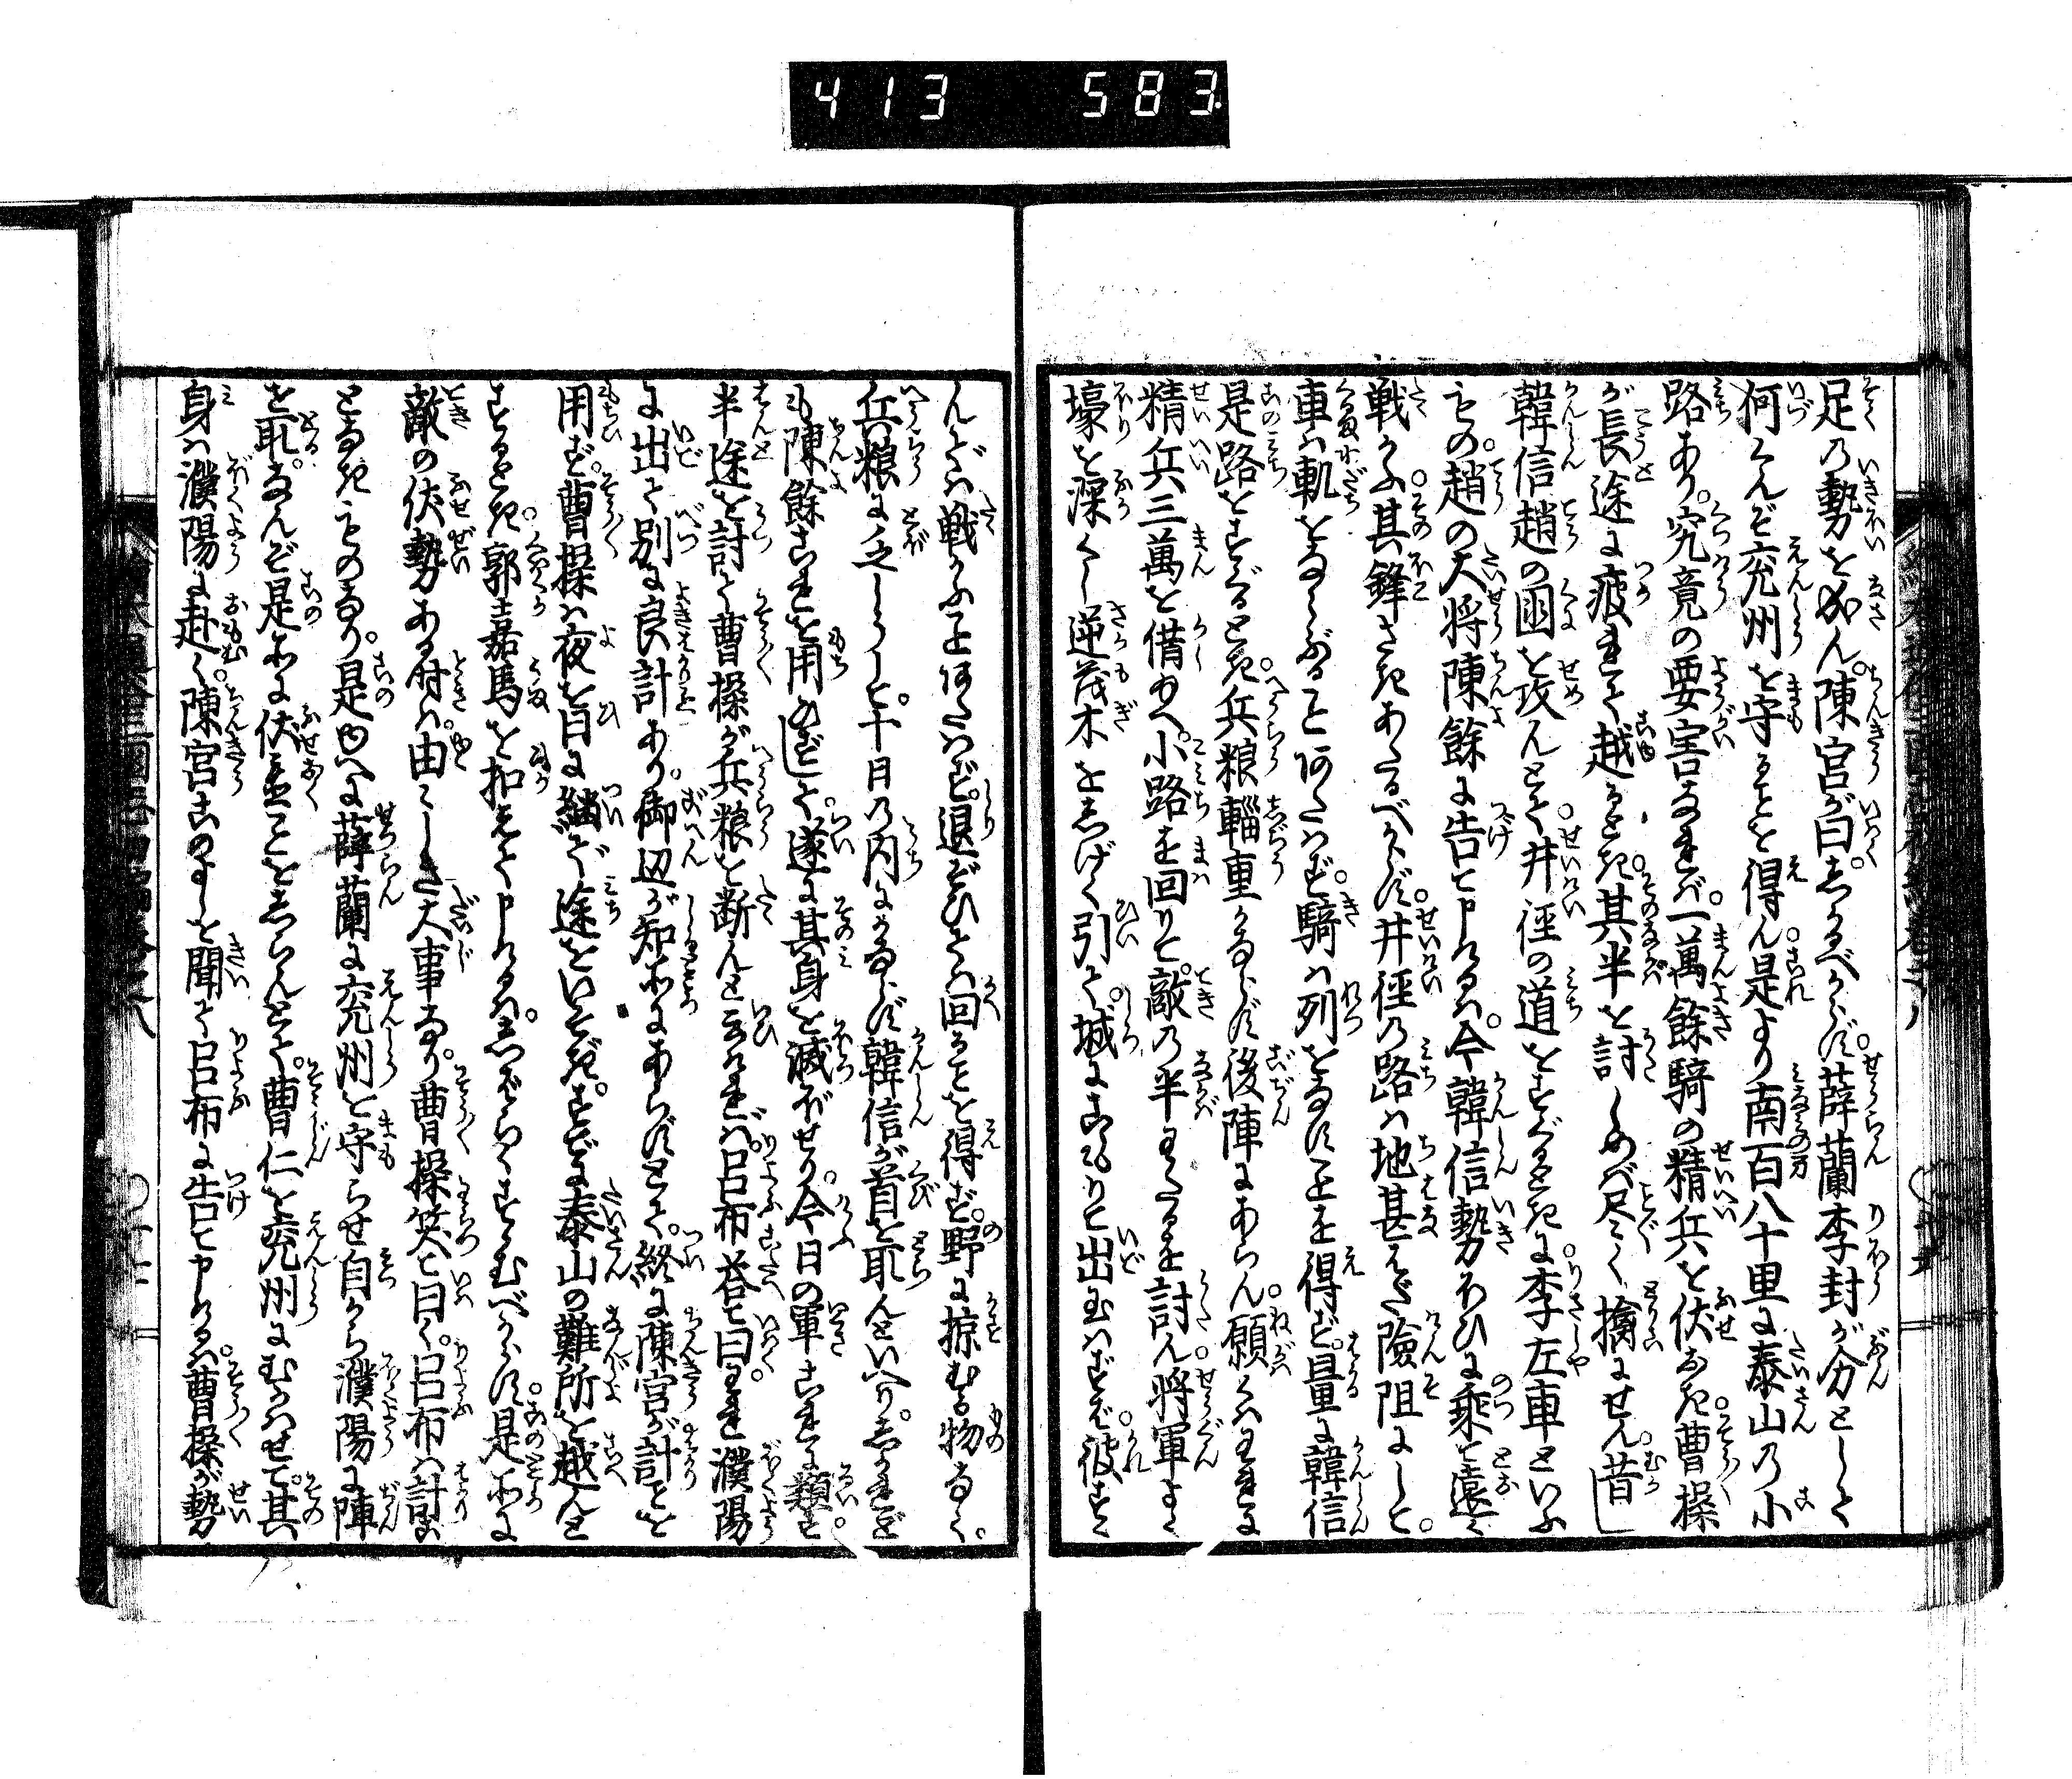 413 583
足の勢をなさん。陳宮が曰。しかるべからず。薛蘭李封が分として
何くんぞ兗州を守ることを得ん。是より南百八十里に泰山の小
路あり。究竟の要害なれバ。一萬餘騎の精兵を伏おき。曹操
が長途に疲れて越るとき。其半を討しめバ尽く擒にせん。昔し
韓信趙の国を攻んとて。井徑の道をすぐるときに。李左車といふ
もの。趙の大将陳餘に告て申けるハ。今韓信勢ひに乗て遠く
戦かふ。其鋒さきあたるべからず。井徑の路ハ地甚はだ險阻にして。
車ハ軌をならぶること阿たハず。騎ハ列をなすことを得ず。量に韓信
是路をすぐるとき。兵粮輜重かならず後陣にあらん。願くハわれに
精兵三萬を借ゆへ。小路を回りて。敵の半わたるを討ん。将軍よく
壕を深くし逆茂木をしげく引て。城にこもりて出玉ハずバ。彼すゝ
んでハ戦かふこと阿たハず。退ぞひてハ回ることを得ず。野に掠むる物なく。
兵粮に乏しうして。十日の内にかならず韓信が首を取んといへり。しかれど
も陳餘これを用ひずして。遂に其身を滅ぼせり。今日の軍これに類せり。
半途を討て曹操が兵粮を断んと云けれバ。呂布答て曰。われ濮陽
に出て別に良計あり。御辺が知所にあらずとて。終に陳宮が計を
用ず。曹操ハ夜を日に継で途をいそぎ。すでに泰山の難所を越んと
するとき。郭嘉馬を扣へて申けるハ。しばらくすゝむべからず。是所に
敵の伏勢ある時ハ。由ゝしき大事なり。曹操笑て曰く。呂布ハ計ごと
となきものなり。是ゆへに薛蘭に兗州を守らせ自から濮陽に陣
を取。なんぞ是所に伏置ことをしらんとて。曹仁を兗州にむかハせて。其
身ハ濮陽に赴く。陳宮このよしを聞て呂布に告て申けるハ。曹操が勢